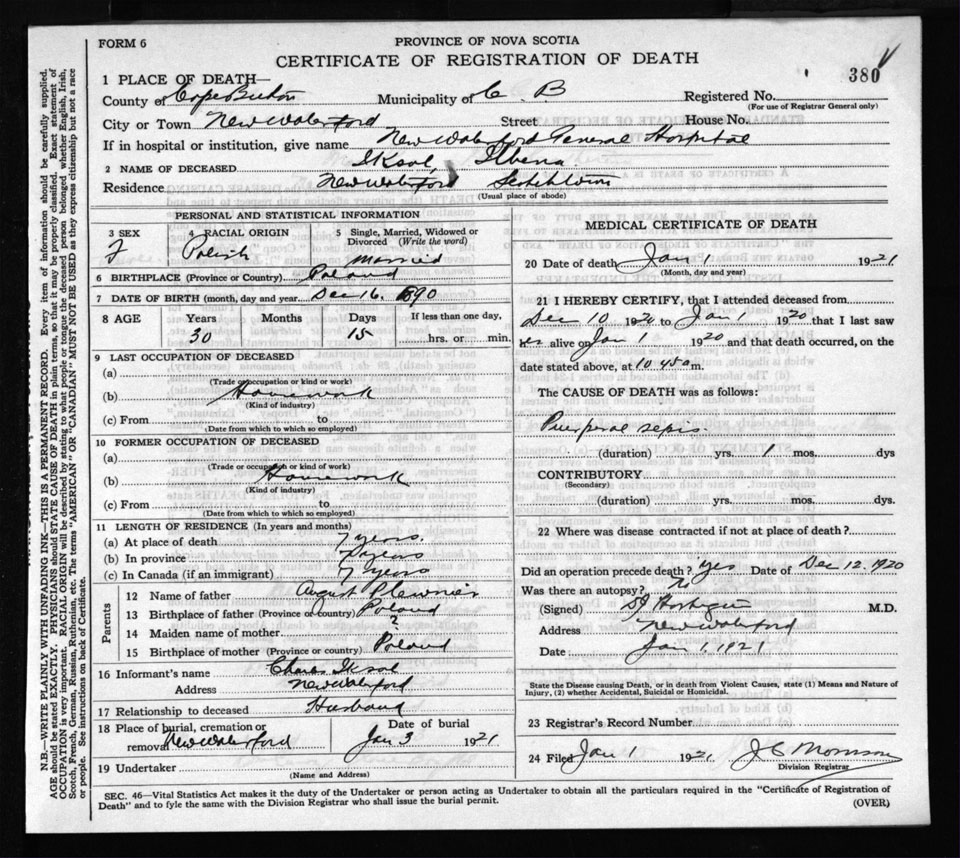 FORM 6
PROVINCE OF NOVA SCOTIA
CERTIFICATE OF REGISTRATION OF DEATH
380
1 PLACE OF DEATH—
County of Cape Breton Municipality of C. B Registered No.
(For use of Registrar General only)
City or Town New Waterford Street House No.
If in hospital or institution, give name New Waterford General Hospital
2 NAME OF DECEASED Iksal, Albena
Residence New Waterford
(Usual place of abode)
PERSONAL AND STATISTICAL INFORMATION
3 SEX 4 RACIAL ORIGIN 5 Single, Married, Widowed or Divorced (Write the word)
F Polish Married
6 BIRTHPLACE (Province or Country) Poland
7 DATE OF BIRTH (month, day and year) Dec 16. 1890
8 AGE Years Months Days If less than one day,
30 15 hrs. or min.
9 LAST OCCUPATION OF DECEASED
(a)
(Trade or occupation or kind or work)
(b) Housework
(Kind of industry)
(c) From to
(Date from which to which so employed)
10 FORMER OCCUPATION OF DECEASED
(a)
(Trade or occupation or kind or work)
(b) Housework
(Kind of industry)
(c) From to
(Date from which to which so employed)
11 LENGTH OF RESIDENCE (In years and months)
(a) At place of death 7 years.
(b) In province 7 years
(c) In Canada (if an immigrant) 7 years
Parents
12 Name of father August
13 Birthplace of father (Province or Country) Poland
14 Maiden name of mother ?
15 Birthplace of mother (Province or country) Poland
16 Informant's name Charles Iksal
Address New Waterford
17 Relationship to deceased Husband
18 Place of burial, cremation or removal New Waterford Date of burial Jan 3 1921
19 Undertaker
(Name and Address)
MEDICAL CERTIFICATE OF DEATH
20 Date of death Jan 1 1921
(Month, day and year)
21 I HEREBY CERTIFY, that I attended deceased from
Dec 10 1920 to Jan 1 1920 that I last saw
her alive on Jan 1 1920 and that death occurred, on the
date stated above, at 10 45 a m.
The CAUSE OF DEATH was as follows:
Puerperal sepsis.
(duration) yrs. 1 mos. dys
CONTRIBUTORY
(Secondary)
(duration) yrs. mos. dys.
22 Where was disease contracted if not at place of death?
Did an operation precede death? Yes Date of Dec 12. 1920
Was there an autopsy? No
(Signed) M.D.
Address New Waterford
Date Jan 1, 1921
State the Disease causing Death, or in death from Violent Causes, state (1) Means and Nature of
Injury, (2) whether Accidental, Suicidal or Homicidal.
23 Registrar's Record Number
24 Filed Jan 1 1921 J C Morrison
Division Registrar
SEC. 46—Vital Statistics Act makes it the duty of the Undertaker or person acting as Undertaker to obtain all the particulars required in the "Certificate of Registration of
Death" and to fyle the same with the Division Registrar who shall issue the burial permit. (OVER)
N.B.—WRITE PLAINLY WITH UNFADING INK—THIS IS A PERMANENT RECORD. Every item of information should be carefully supplied.
AGE should be stated EXACTLY. PHYSICIANS should STATE CAUSE OF DEATH in plain terms, so that it may be properly classified. Exact statement of
OCCUPATION is very important. RACIAL ORIGIN will be described by stating to what people or tongue the deceased person belonged whether English, Irish,
Scotch, French, German, Russian, Ruthenian, etc. The terms "AMERICAN" OR "CANADIAN" MUST NOT BE USED as they express citizenship but not a race
or people. See instructions on back of Certificate.